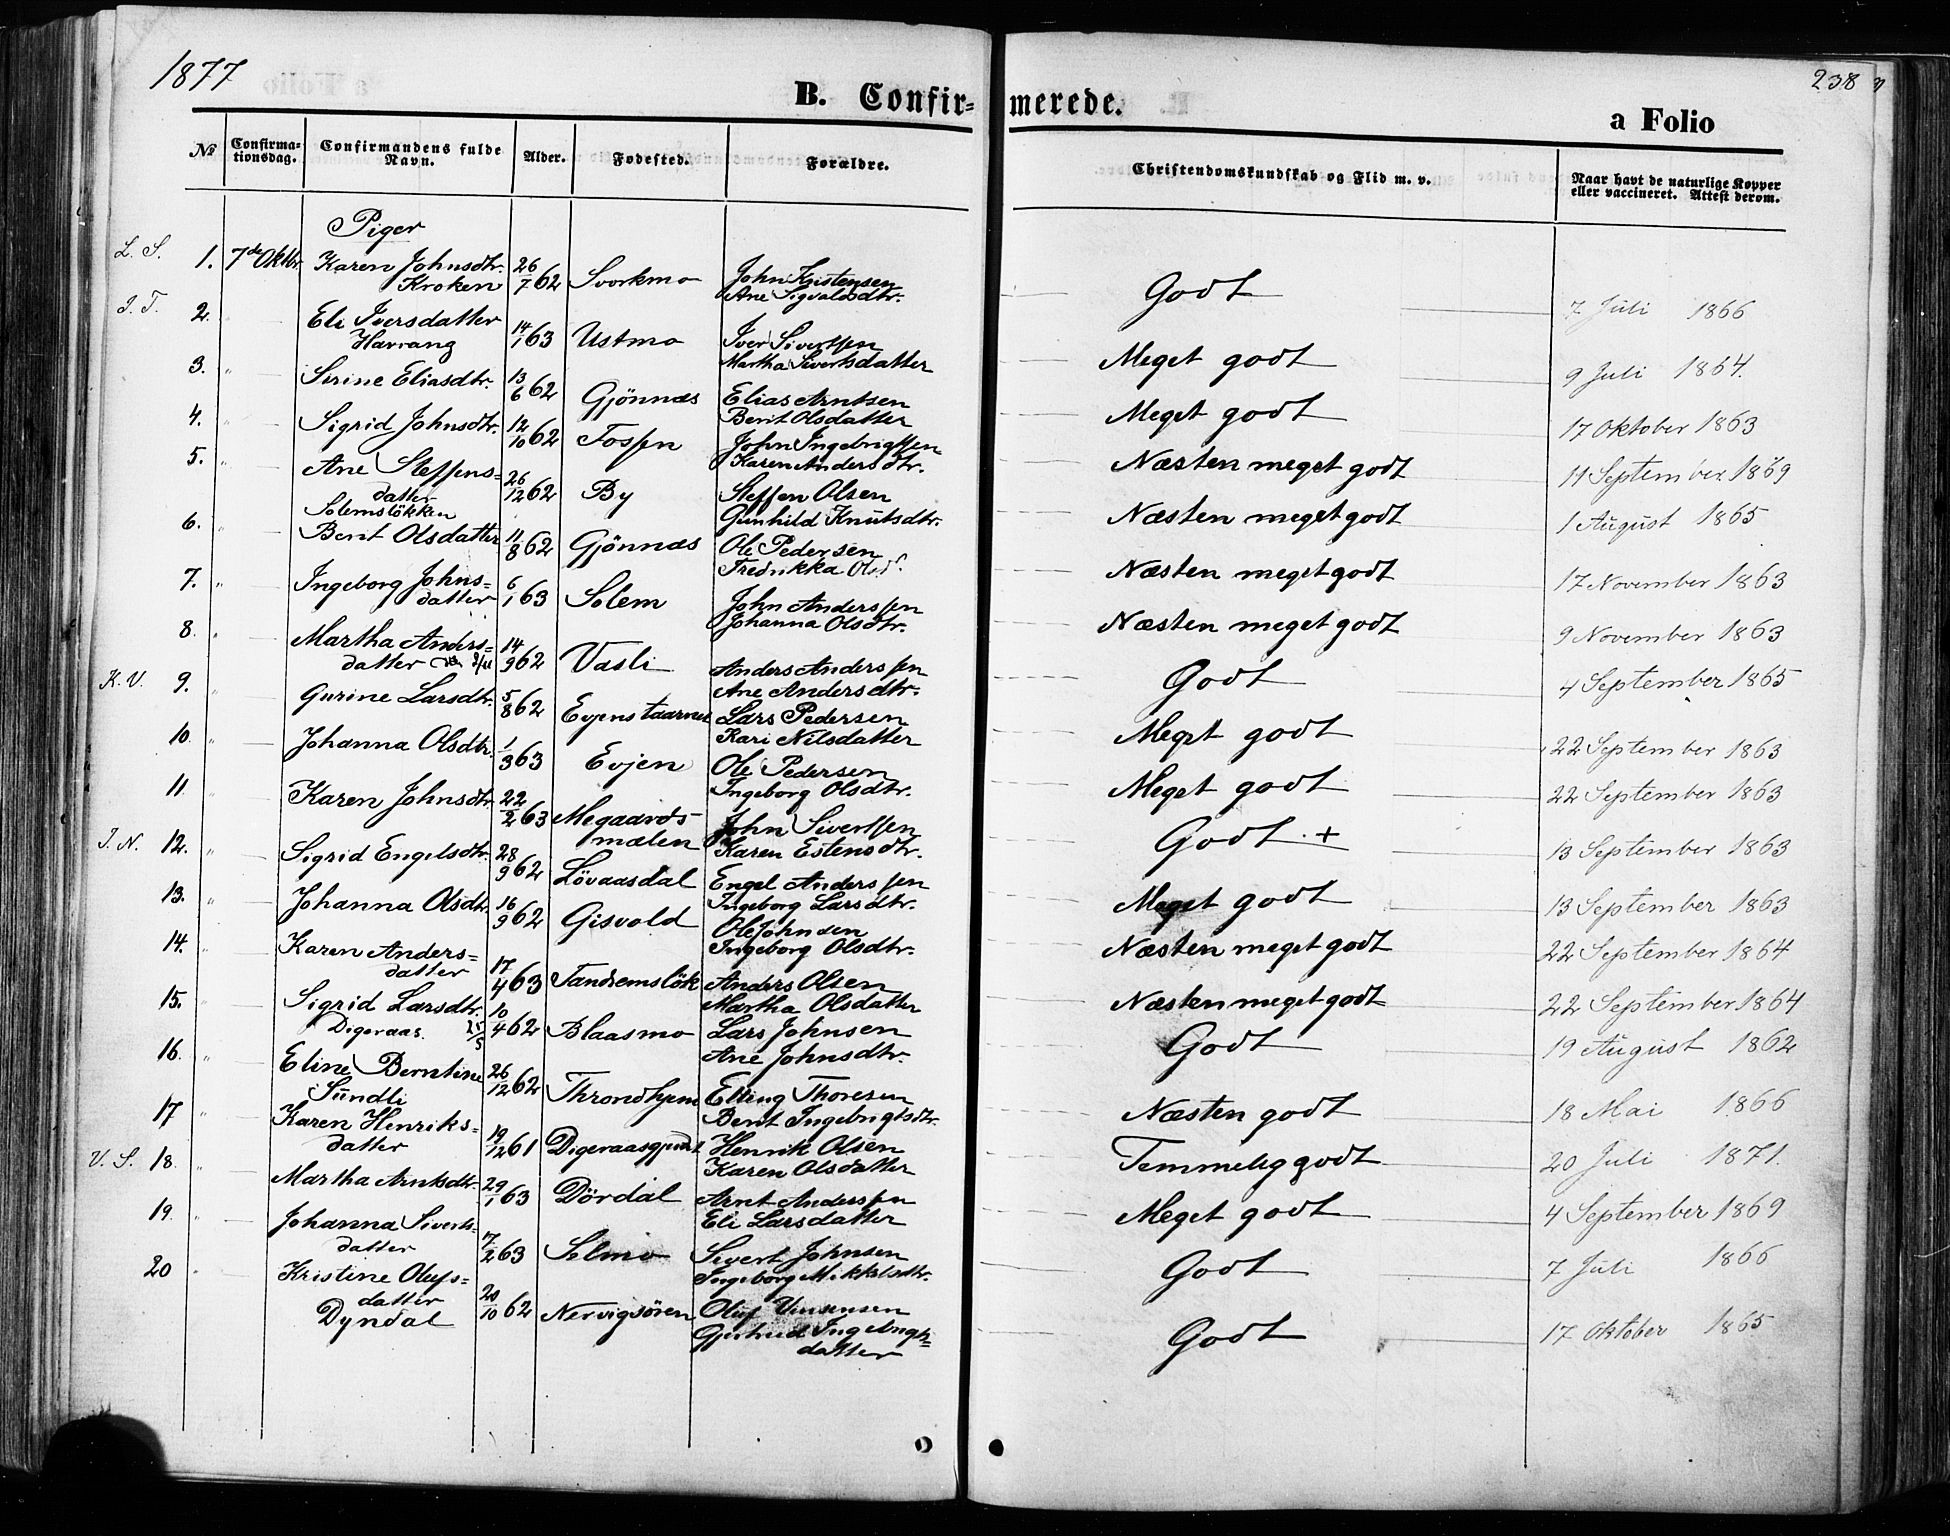 1877
238
B. Confir=merede.
a Folio
No
Confirma-tionsdag.
Confirmandens fulde Navn.
Alder.
Fødested.
Forældre.
Christendomskundskab og Flid m. v.
Naar havt de naturlige Kopper eller vaccineret. Attest derom.
Piger
L. S. 1. 7de Oktbr. Karen Johnsdtr. Kroken 26/7 62 Svorkmo John Kristensen Ane Sigvaldsdtr. Godt 7 Juli 1866
I. T. 2. " Eli Iversdatter Harrang 14/1 63 Ustmo Iver Sivertsen Martha Sivertsdatter Meget godt 9 Juli 1864.
3. " Serine Eliasdtr. 13/6 62 Gjönnæs Elias Arntsen Berit Olsdatter Meget godt 17 Oktober 1863
4. " Sigrid Johnsdtr. 12/10 62 Fossen John Ingebrigtsen Karen Andersdtr. Næsten meget godt 11 September 1869
5. " Ane Steffens=datter Solemslökken 26/12 62 By Steffen Olsen Gunhild Knutsdtr. Næsten meget godt 1 August 1865
6. " Berit Olsdatter 11/8 62 Gjönnæs Ole Pedersen Fredrikka Olsd. Næsten meget godt 17 November 1863
7. " Ingeborg Johns=datter 6/1 63 Solem John Anderssen Johanna Olsdtr. Næsten meget godt 9 November 1863
8. " Martha Anders=datter 14/9 62 Vasli Anders Anderssen Ane Andersdtr. Godt 4 September 1865
K. V. 9. " Gurine Larsdtr. 5/8 62 Evjenstaarnes Lars Pedersen Kari Nilsdatter Meget godt 22 September 1863
10. " Johanna Olsdtr. 1/3 63 Evjen Ole Pedersen Ingeborg Olsdtr. Meget godt 22 September 1863
11. " Karen Johnsdtr. 22/2 63 Megaards-mælen John Sivertsen Karen Estensdtr. Godt. + 13 September 1863
I. N. 12. " Sigrid Engelsdtr. 28/9 62 Lövaasdal Engel Anderssen Ingeborg Larsdtr. Meget godt 13 September 1863
13. " Johanna Olsdtr. 16/9 62 Gisvold Ole Johnsen Ingeborg Olsdtr. Næsten meget godt 22 September 1864
14. " Karen Anders=datter 17/4 63 Tandremslök Anders Olsen Martha Olsdatter Næsten meget godt 22 September 1864
15. " Sigrid Larsdtr. Digeraas. 10/4 62 Blaasmo Lars Johnsen Ane Johnsdtr. Godt 19 August 1862
16. " Eline Berntine Sundli 26/12 62 Throndhjem Elling Thoresen Berit Ingebrigtsdtr. Næsten godt 18 Mai 1866
17 " Karen Henriks=datter 19/12 61 Digeraasgjerdet Henrik Olsen Karen Olsdatter Temmelig godt 20 Juli 1871.
V. S. 18. " Martha Arntsdtr. 29/1 63 Dördal Arnt Anderssen Eli Larsdatter Meget godt 4 September 1869
19. " Johanna Siverts=datter 17/2 63 Solmo Sivert Johnsen Ingeborg Mikkelsdtr. Godt 7 Juli 1866
20 " Kristine Olufs=datter Dyndal 20/10 62 Nervigsören Oluf Vinsensen Gjertrud Ingebrigts=datter Godt 17 Oktober 1865